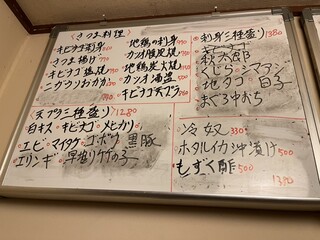 〈さつま料理〉
キビナゴ刺身
さつま揚げ
キビナゴ塩焼
地鶏の刺身
カツオ腹皮焼
地鶏炭火焼
カツオ酒盗
キビナゴ天プラ
〈刺身三種盛り〉1380
キビナゴ
秋太郎
くじら シマタン
地タコ 白子
まぐろ中おち
〈天プラ三種盛り〉1280
白キス キビナゴ メヒカリ
エビ マイタケ ゴボウ 黒豚
エリンギ 早掘りタケの子
冷奴 330
ホタルイカ沖漬け 500
もずく酢 500